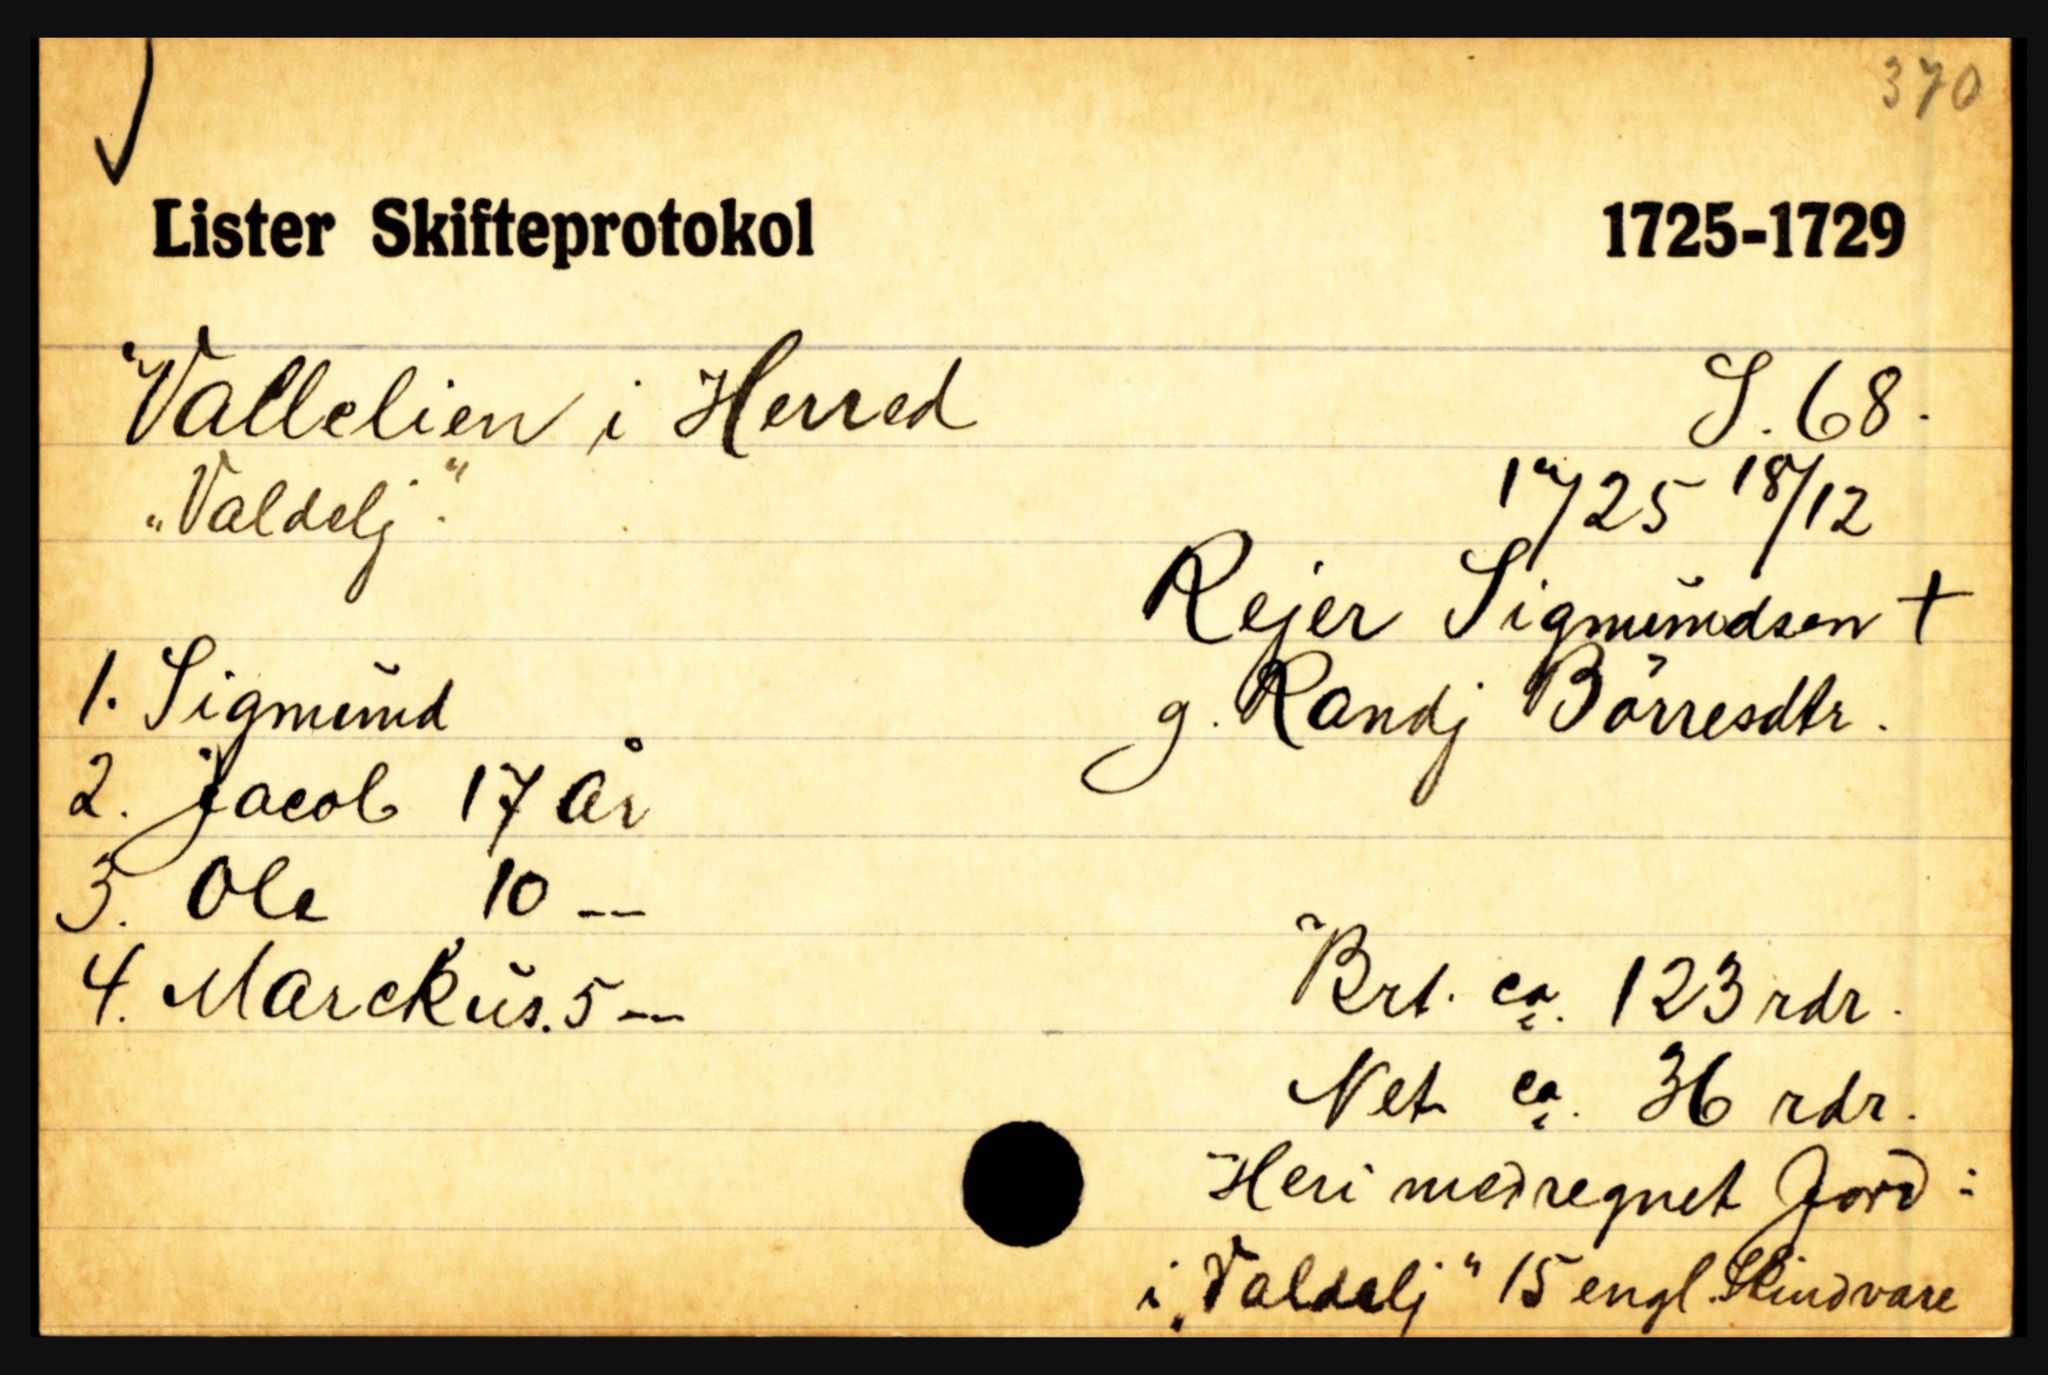 370
Lister Skifteprotokol 1725-1729
Vallelien i Herred S. 68.
„Valdelj“. 17/25 18/12
Rejer Sigmŭndsen +
1. Sigmŭnd g. Randj Börresdtr.
2. Jacob 17 år
3. Ole 10 —
4. Marckŭs. 5 — Brt. ca. 123 rdr.
Net ca. 36 rdr.
Heri medregnet Jord :
i „Valdelj“ 15 engl. Skindvare